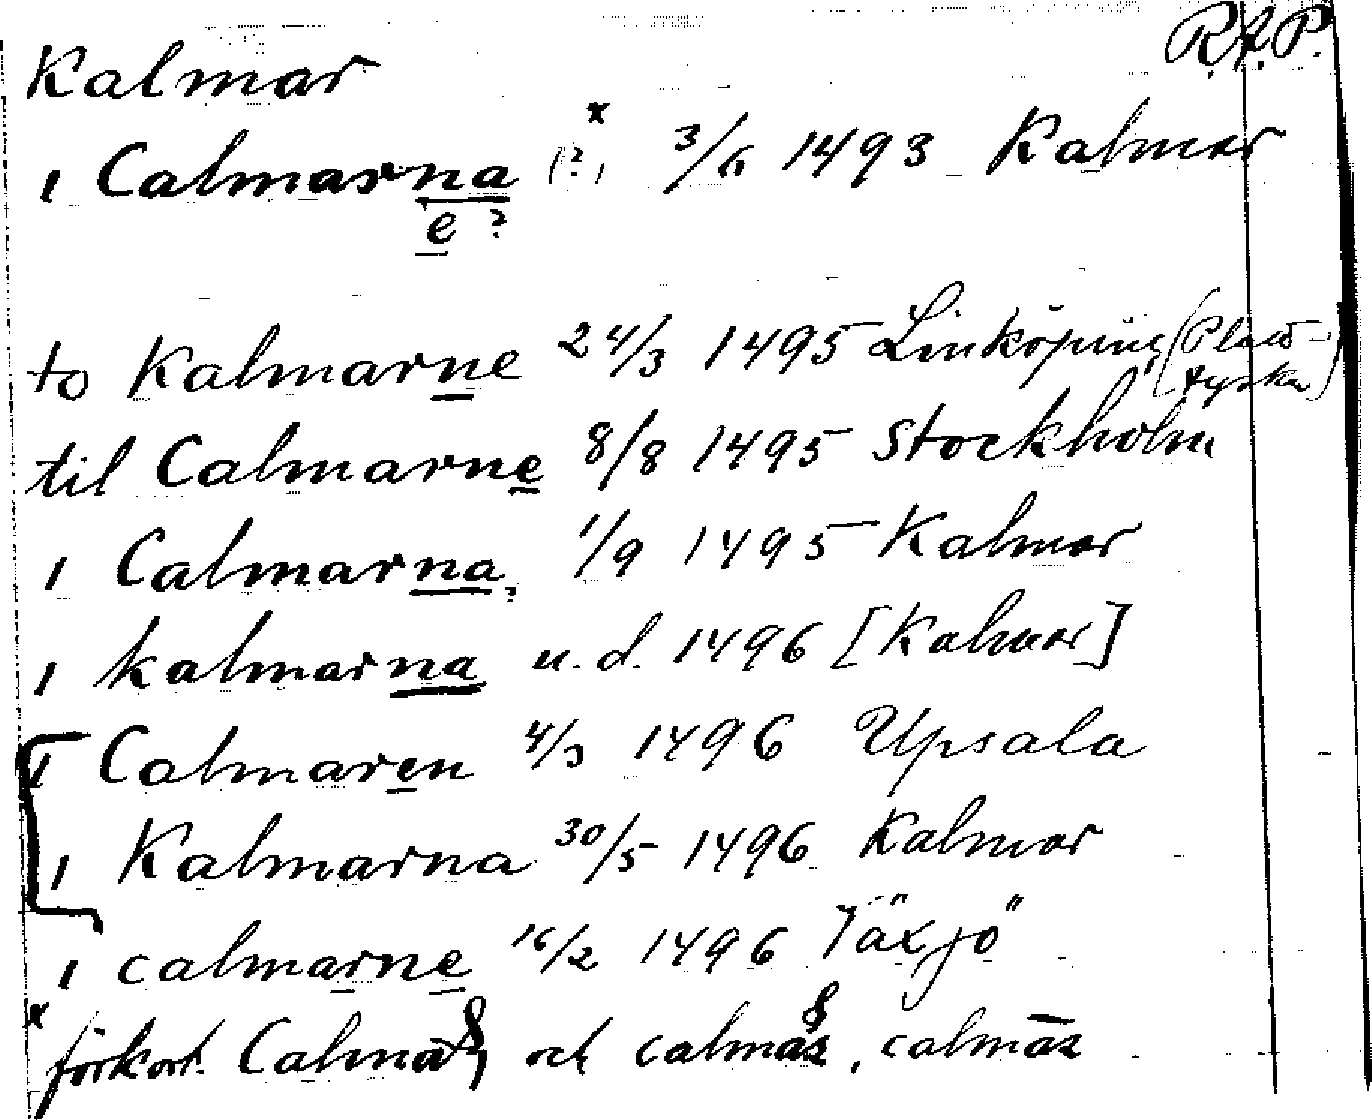 Kalmar R.A.P.
i Calmarna (?) x 3/6 1493 Kalmar
e ?
to Kalmarne 24/3 1495 Linköping (Platt-
tyska)
til Calmarne 8/8 1495 Stockholm
i Calmarna, 1/9 1495 Kalmar
?
i kalmarna u.d. 1496 [Kalmar]
i Calmaren 4/3 1496 Upsala
i Kalmarna 30/5 1496 Kalmar
i calmarne 16/2 1496 Växjö
x förkort. och calmāz